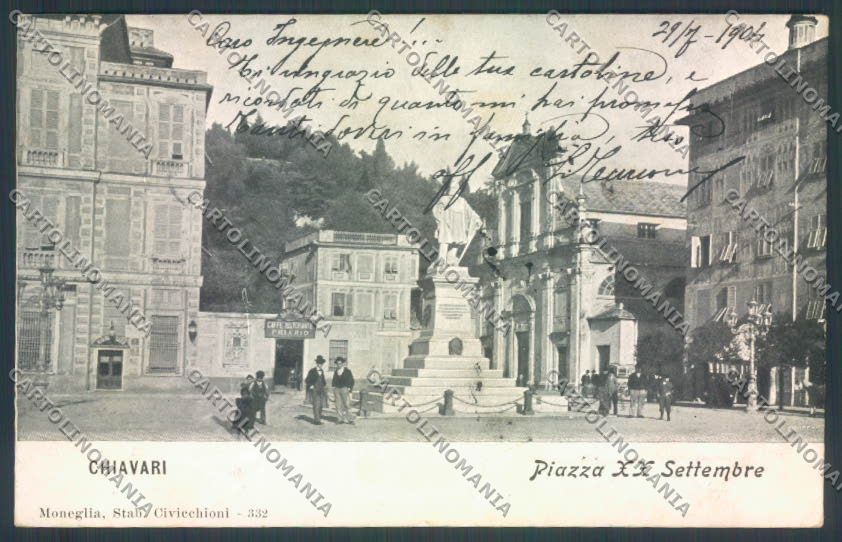 29/7-1904
Caro Ingegnere!...
Ti ringrazio delle tue cartoline, e
ricordati di quanto mi hai promesso
Tanti doveri in famiglia, tuo
aff
CAFFÈ RISTORANTE
PRIARIO
CHIAVARI
Piazza XX Settembre
Moneglia, Stab. Civicchioni - 332
CARTOLINOMANIA